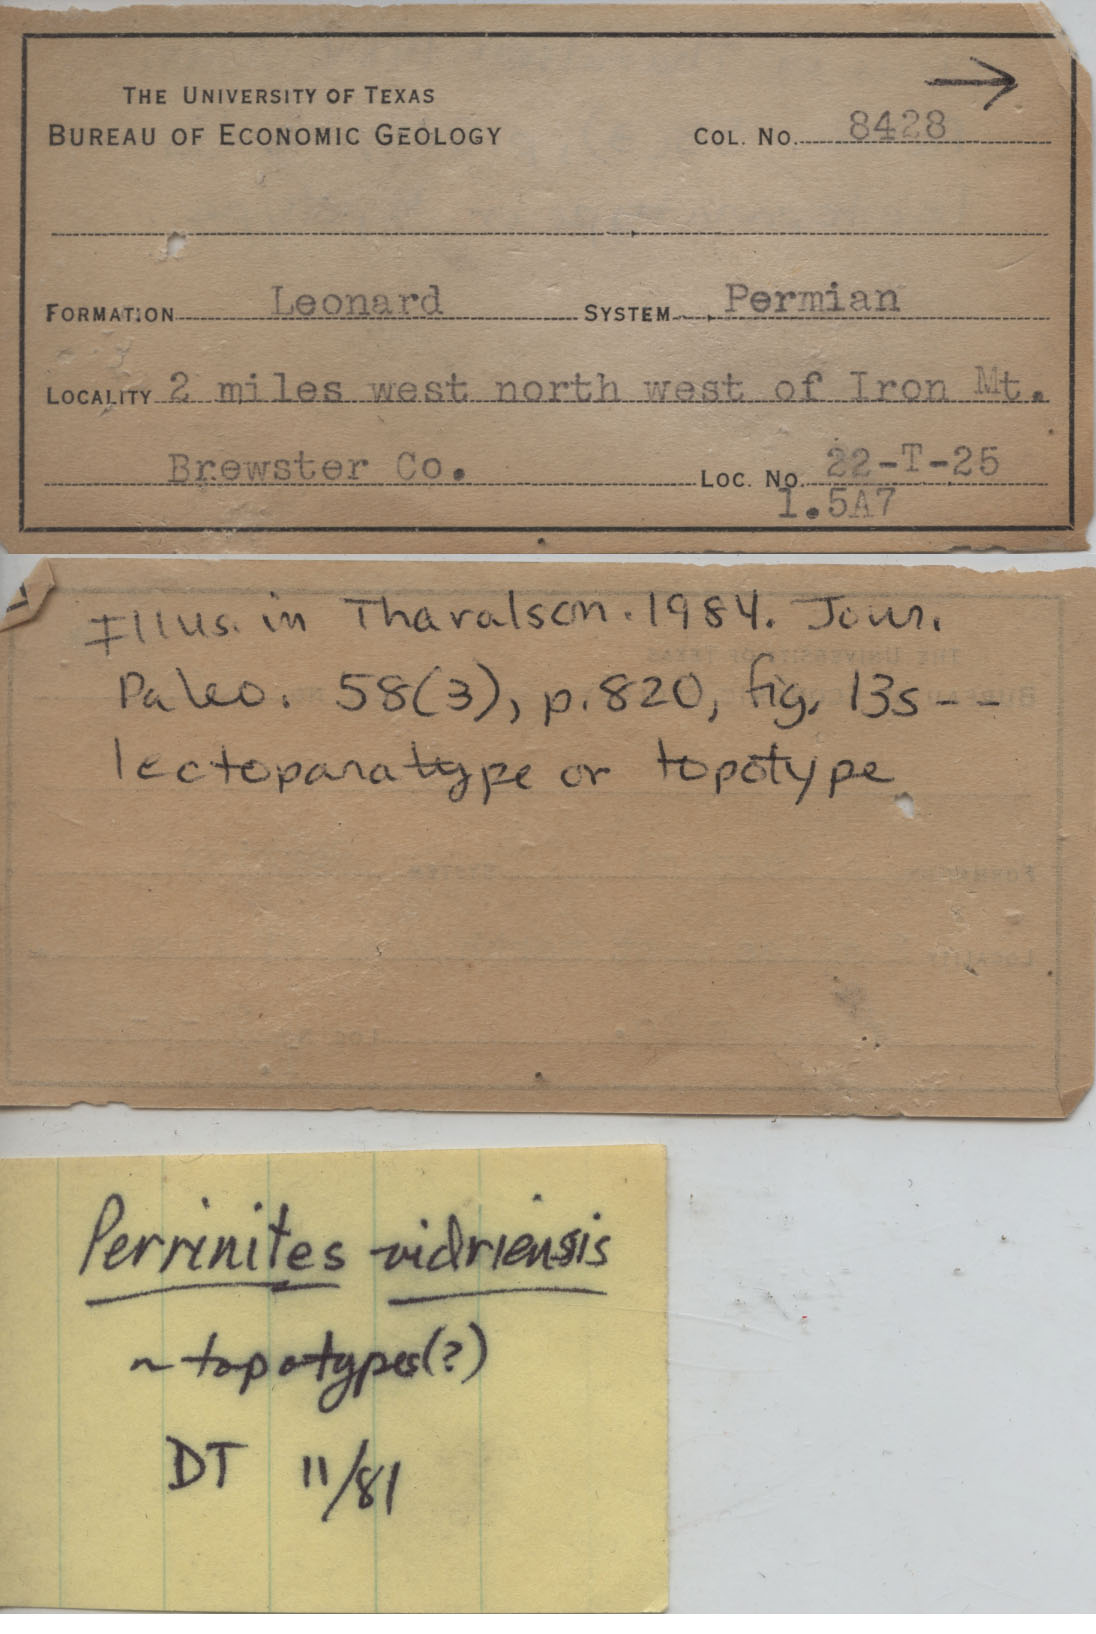 THE UNIVERSITY OF TEXAS
BUREAU OF ECONOMIC GEOLOGY
COL. NO. 8428
FORMATION Leonard SYSTEM Permian
LOCALITY 2 miles west north west of Iron Mt.
Brewster Co. LOC. NO. 22-T-25
1.5A7
Illus. in Tharalson. 1984. Jour.
Paleo. 58(3), p.820, fig. 13s--
lectoparatype or topotype
Perrinites vidriensis
~topotypes(?)
DT 11/81